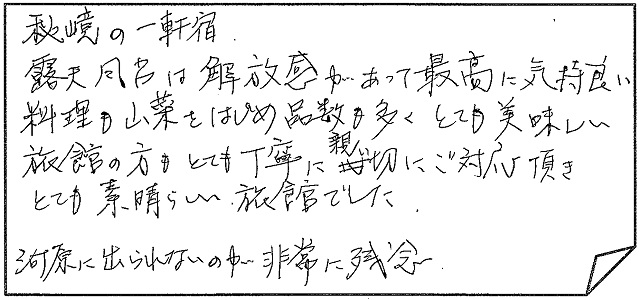 秘境の一軒宿
露天風呂は解放感があって最高に気持良い
料理も山菜をはじめ品数も多くとても美味しい
旅館の方もとても丁寧に親切にご対応頂き
とても素晴らしい旅館でした
河原に出られないのが非常に残念